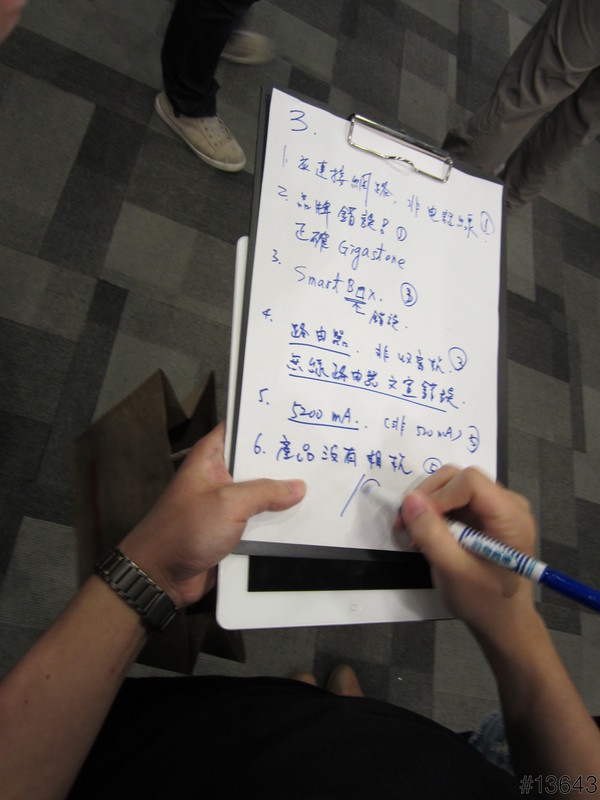 3.
1. 應連接網路. 非电話線 ①
2. 品牌錯誤? ①
正確 Gigastone
3. Smart Box. ③
錯誤.
4. 路由器. 非收音机. ③
無線路由器 文宣錯誤.
5. 5200 mA. (非 520 mA) ⑤
6. 產品沒有相机 ⑤
#13643